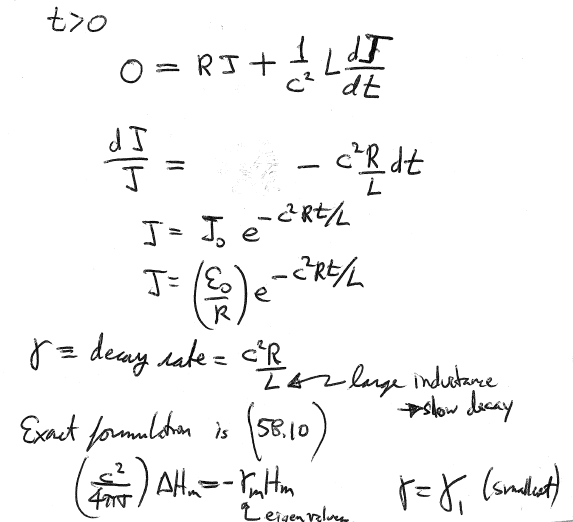 t>0
0 = RJ + 1/c² L dJ/dt
dJ/J = - c²R/L dt
J = J₀ e^{-c²Rt/L}
J = (ε₀/R) e^{-c²Rt/L}
γ ≡ decay rate = c²R/L ← large inductance
→ slow decay
Exact formulation is (58.10)
(c²/4πσ) ΔHₘ = -γₘHₘ γ = γ₁ (smallest)
eigenvalues